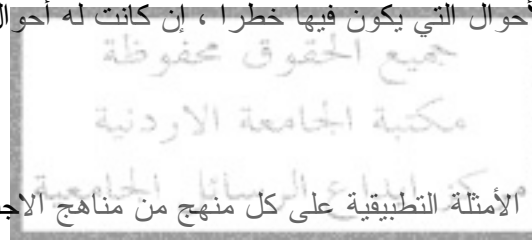 أحوال التي يكون فيها خطرا ، إن كانت له أحوال
جميع الحقوق محفوظة
مكتبة الجامعة الاردنية
مركز ايداع الرسائل الجامعية
الأمثلة التطبيقية على كل منهج من مناهج الاج